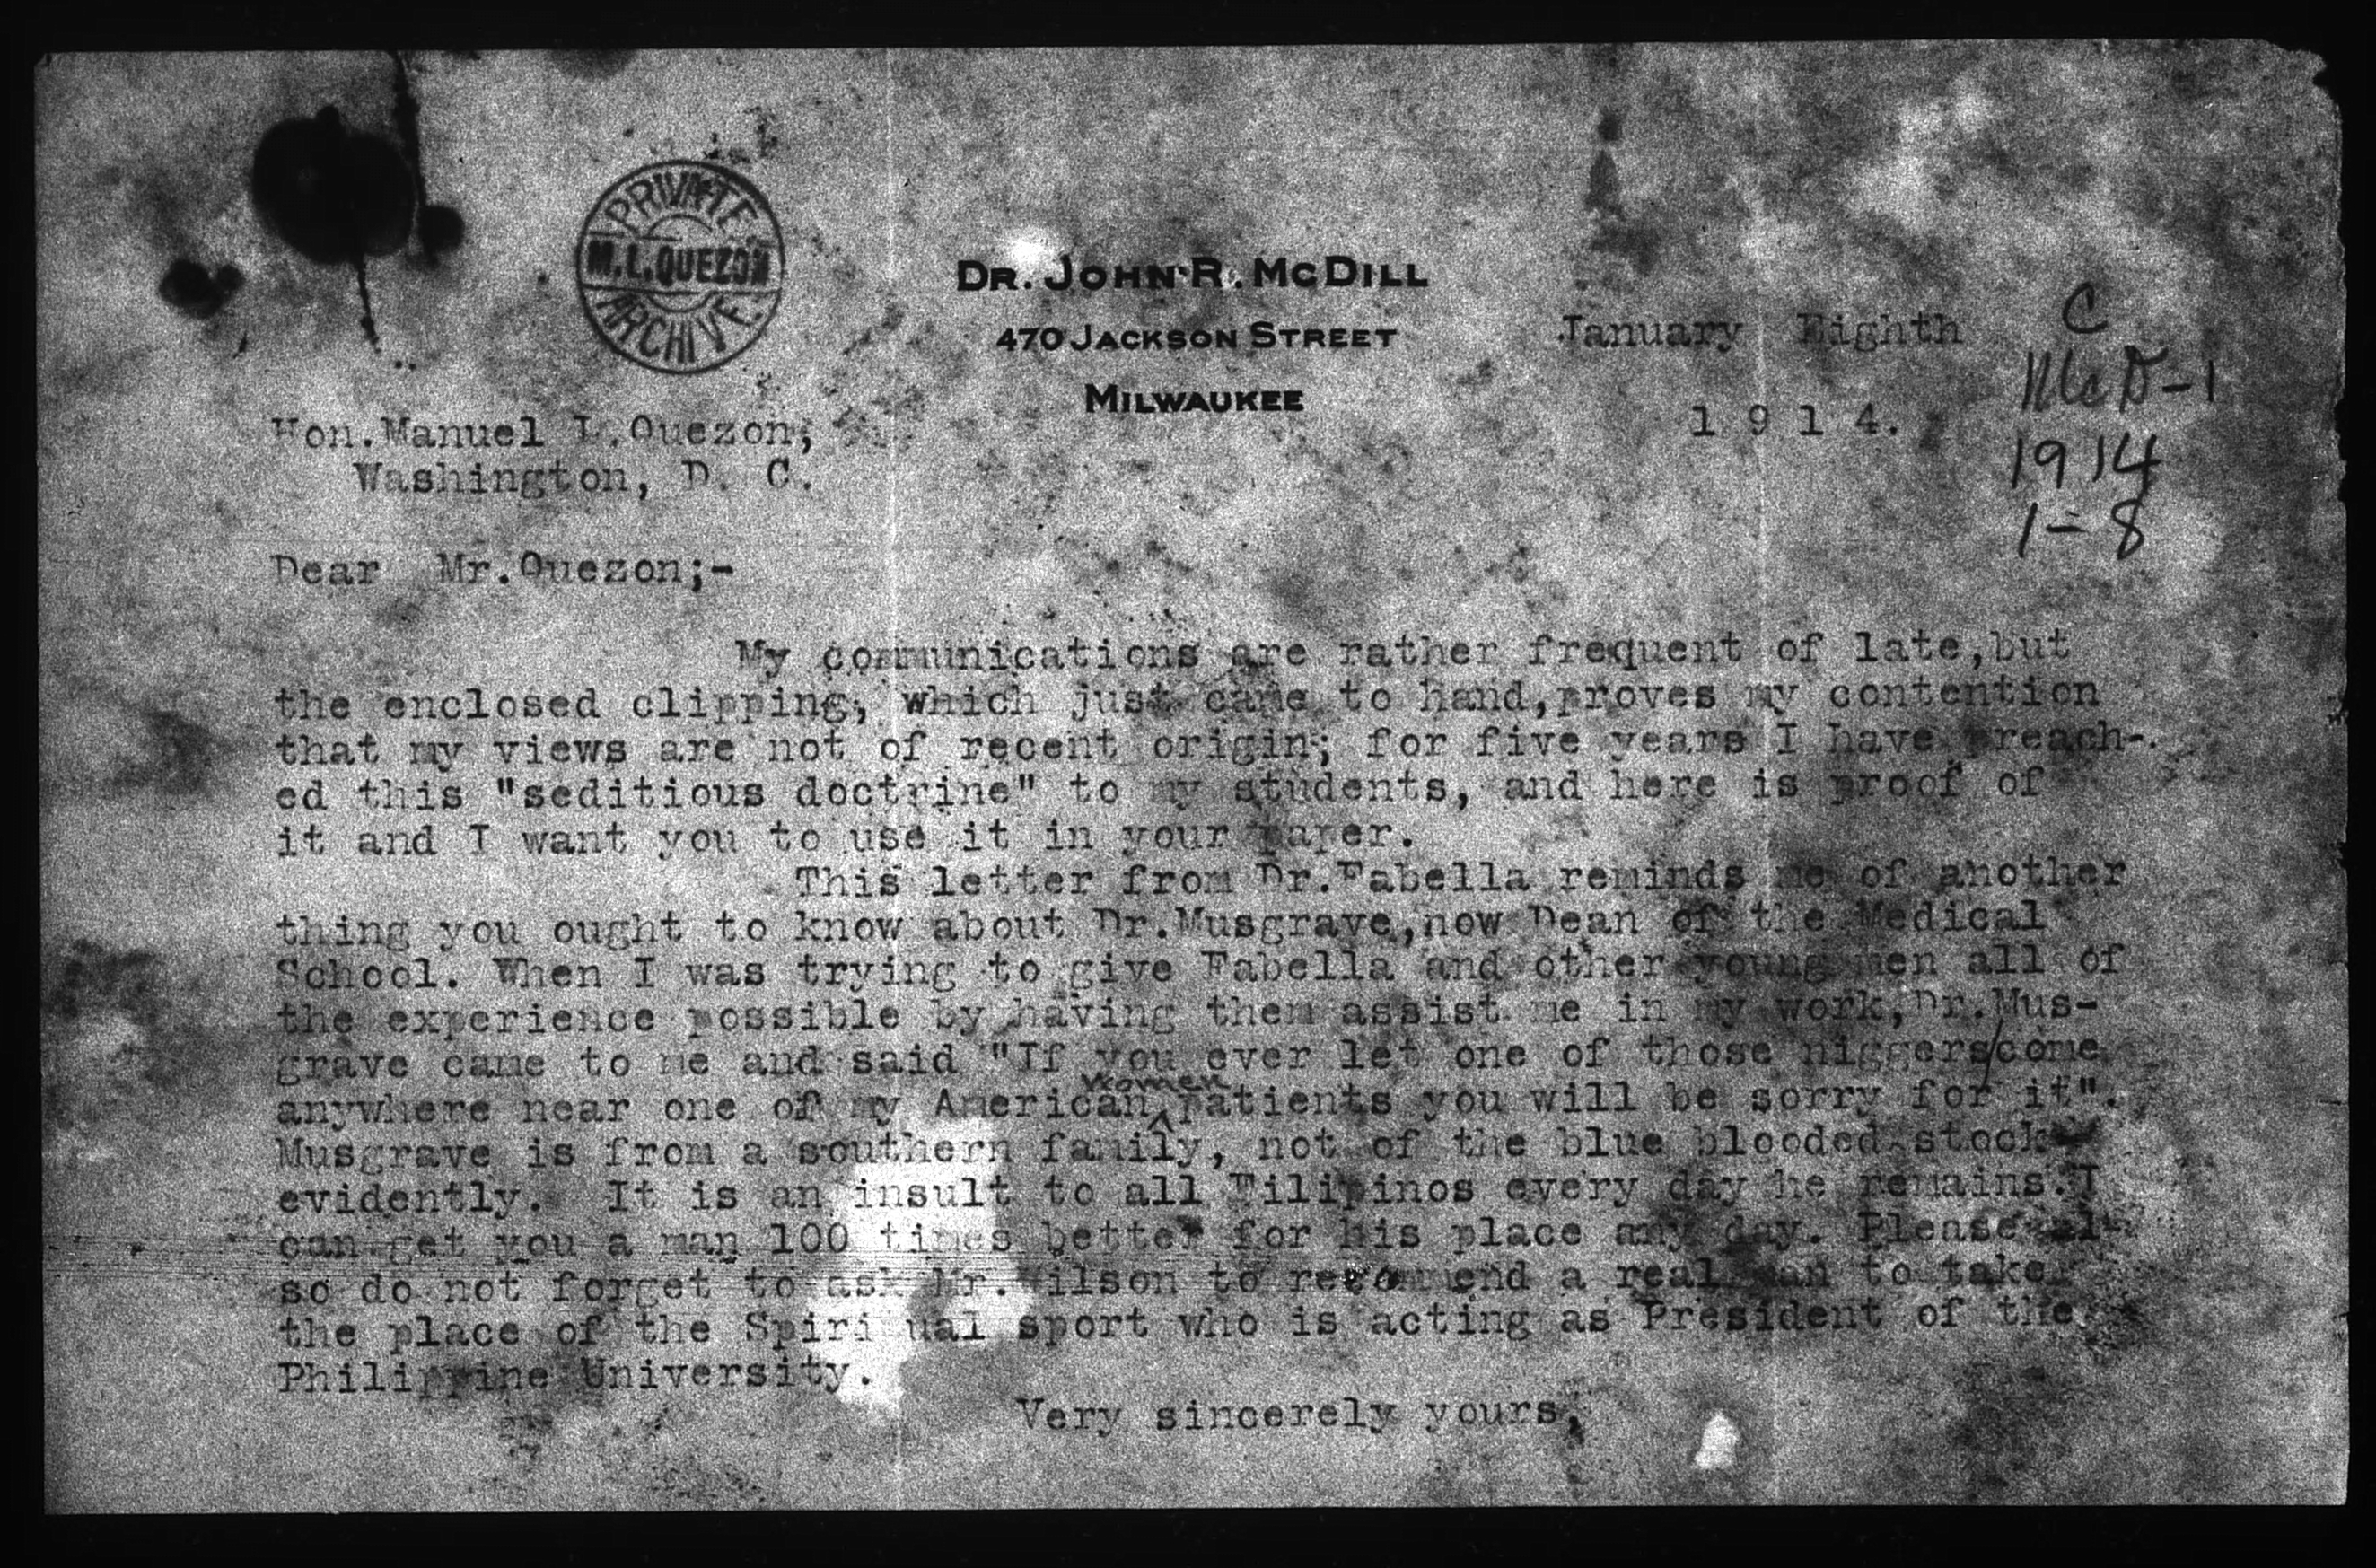 PRIVATE
M.L.QUEZON
ARCHIVE
DR. JOHN R. MCDILL
470 JACKSON STREET
MILWAUKEE
January Eighth
1 9 1 4.
C
McD-1
1914
1-8
Hon.Manuel L.Quezon;
Washington, D. C.
Dear Mr.Quezon;-
My communications are rather frequent of late,but
the enclosed clipping, which just came to hand,proves my contention
that my views are not of recent origin; for five years I have preach-
ed this "seditious doctrine" to my students, and here is proof of
it and I want you to use it in your paper.
This letter from Dr.Fabella reminds me of another
thing you ought to know about Dr.Musgrave,now Dean of the Medical
School. When I was trying to give Fabella and other young men all of
the experience possible by having them assist me in my work,Dr.Mus-
grave came to me and said "If you ever let one of those niggers/come
women
anywhere near one of my American patients you will be sorry for it".
Musgrave is from a southern family, not of the blue blooded stock
evidently. It is an insult to all Filipinos every day he remains.I
can get you a man 100 times better for his place any day. Please al-
so do not forget to ask Mr. Wilson to recommend a real man to take
the place of the Spiri ual sport who is acting as President of the
Philippine University.
Very sincerely yours,